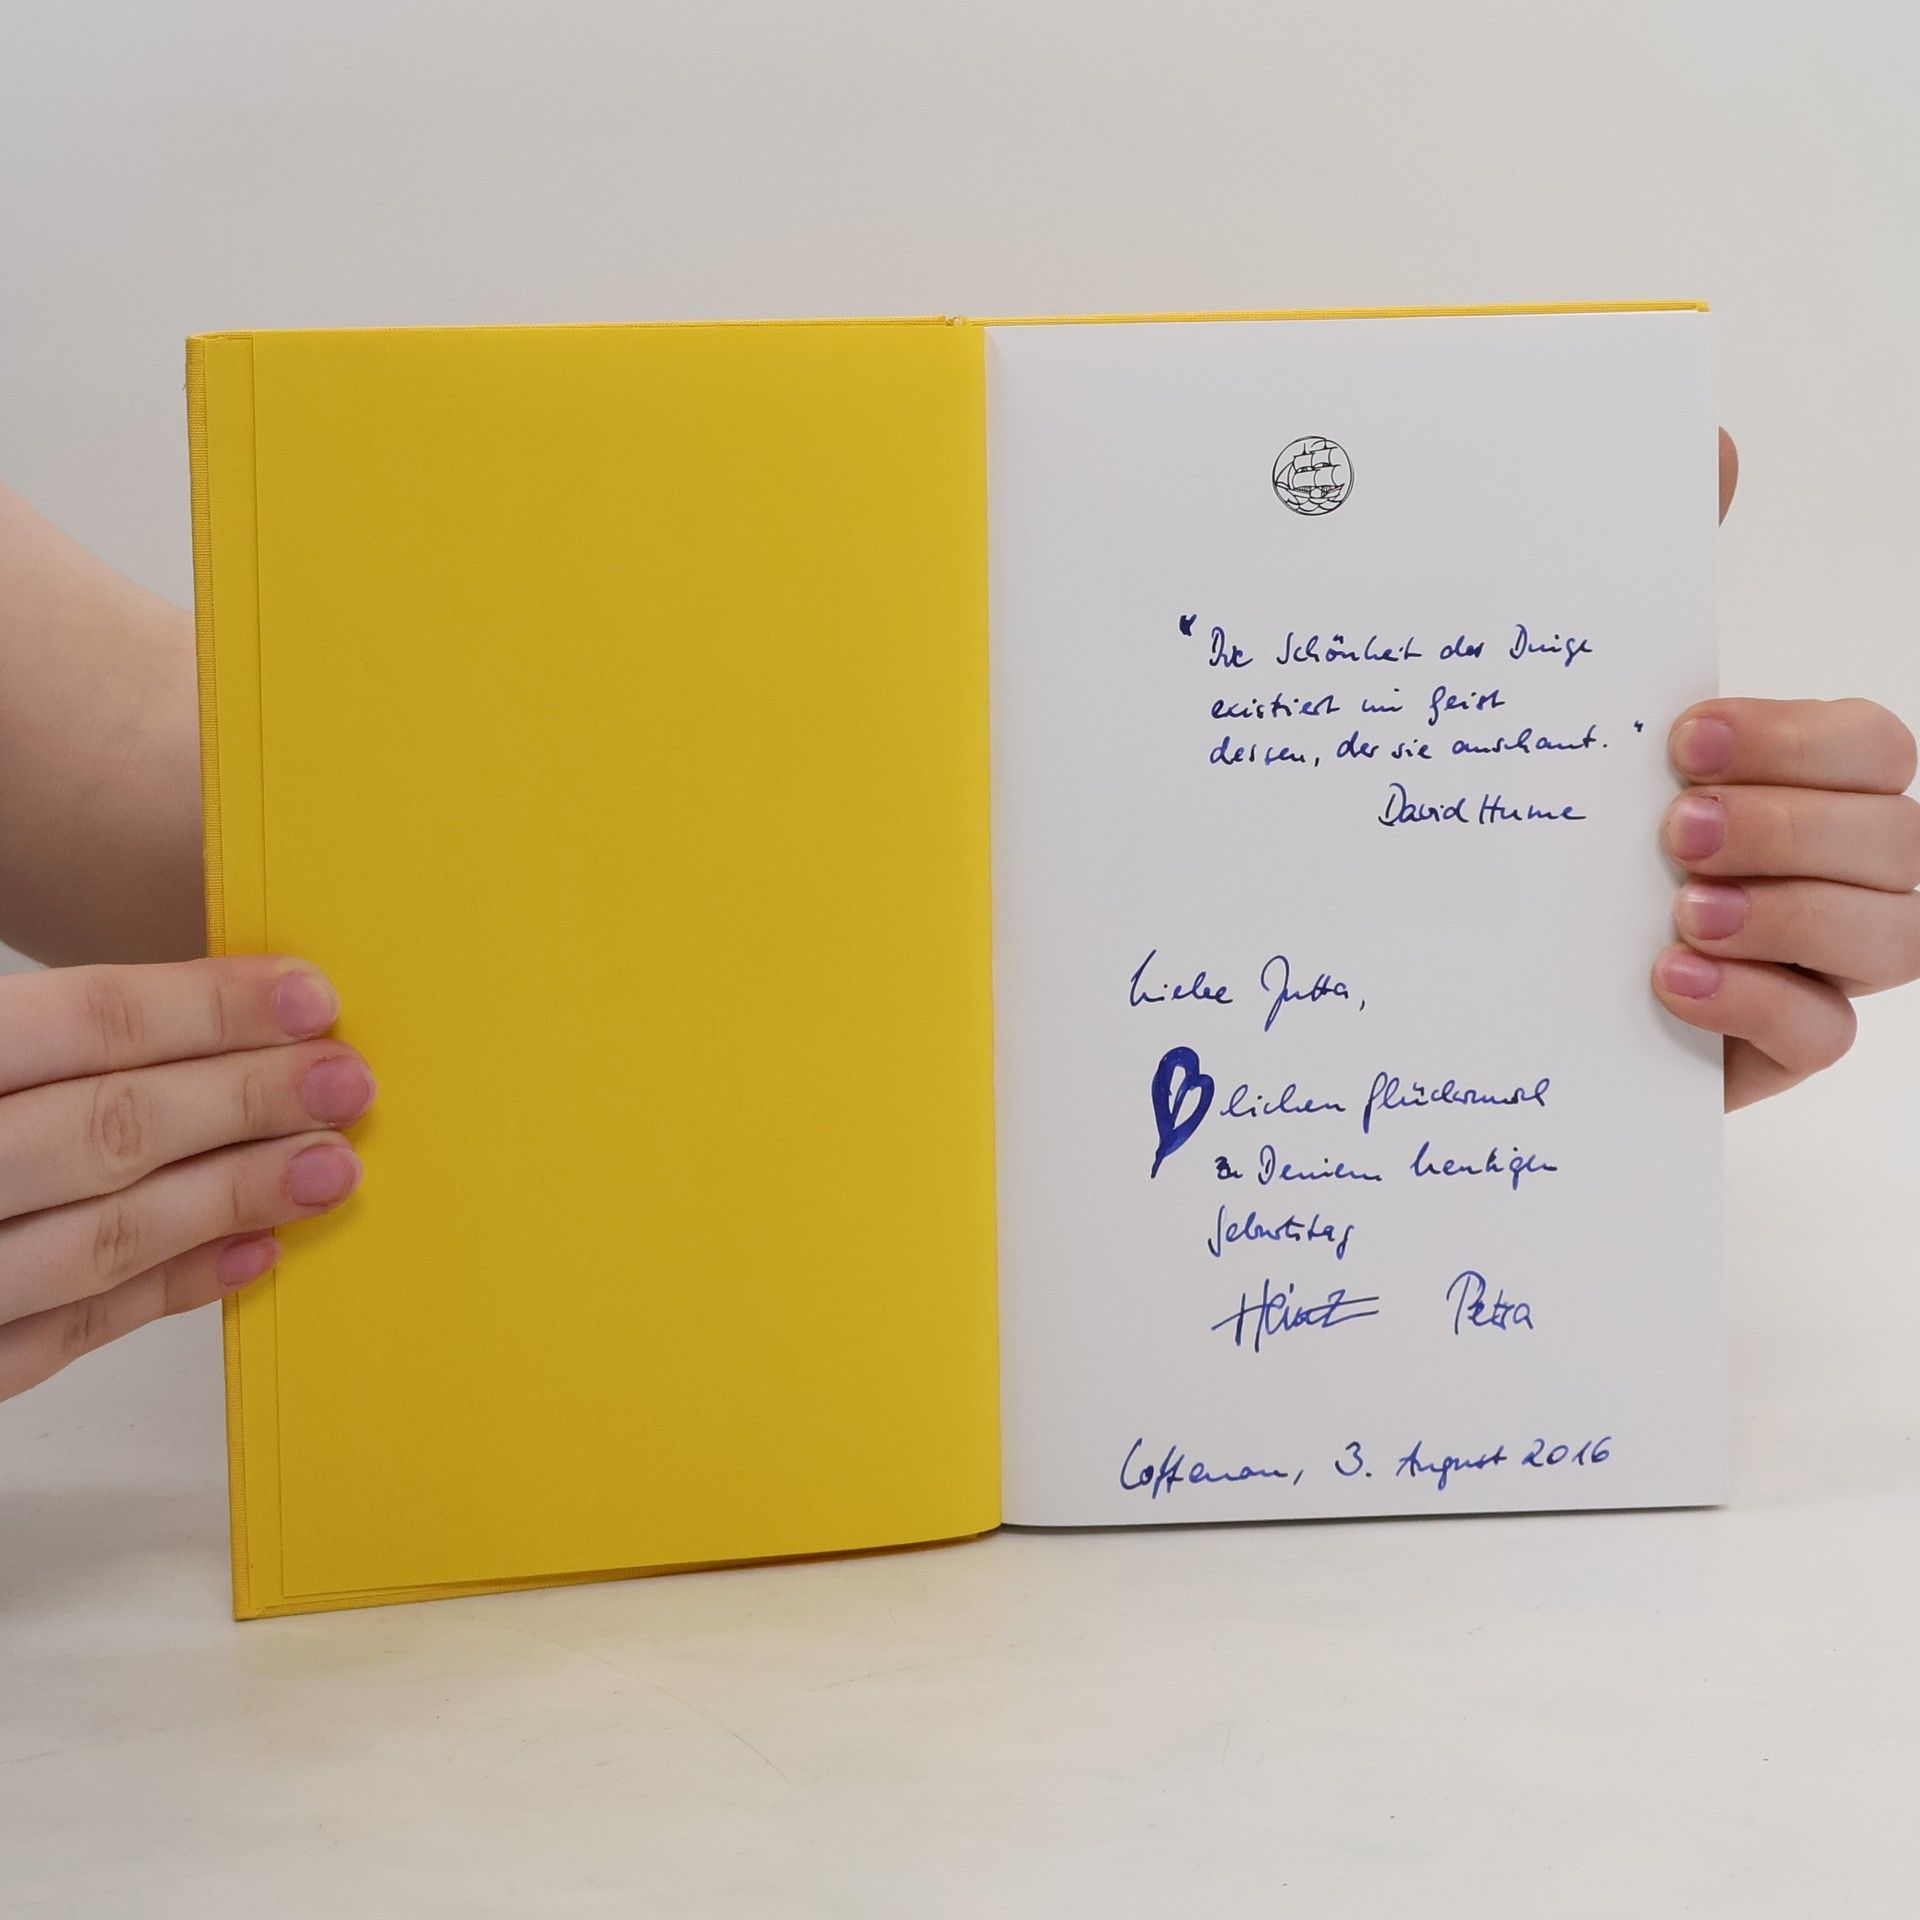 "Die Schönheit der Dinge
existiert im Geist
dessen, der sie anschaut."
David Hume
Liebe Jutta,
lichen Glückwunsch
zu Deinem heutigen
Geburtstag
Heinz Petra
Loffenau, 3. August 2016